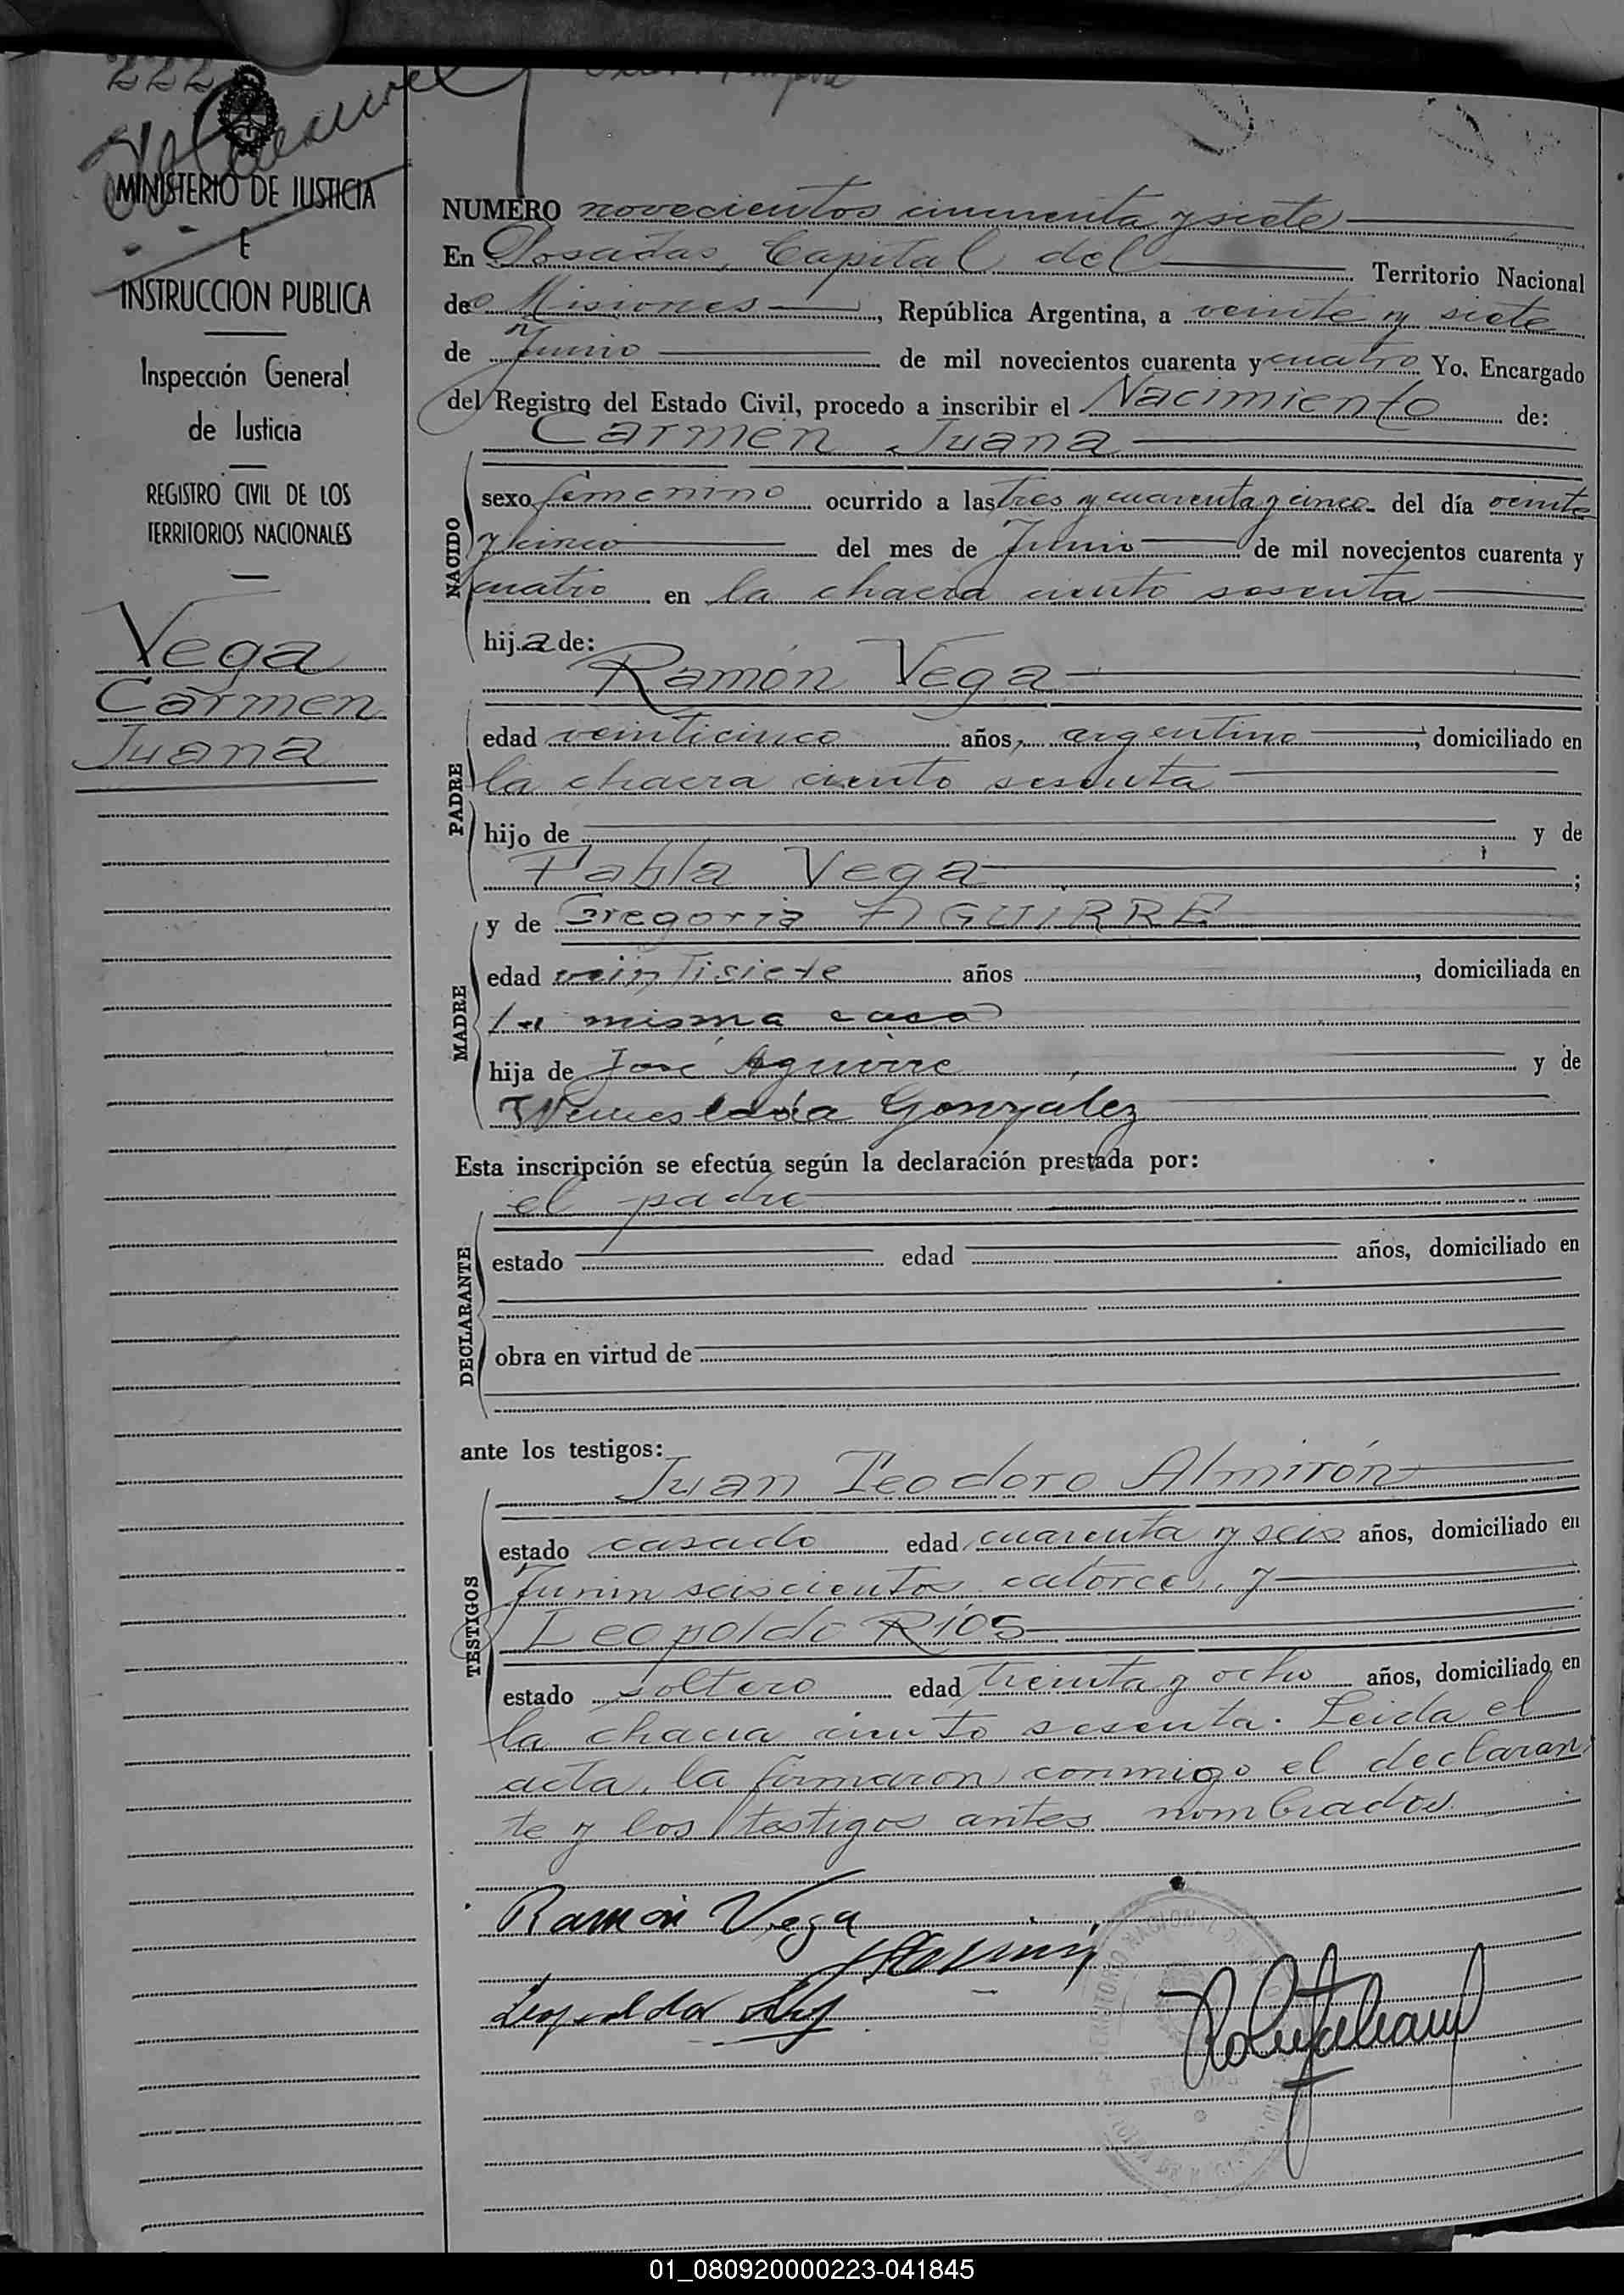 222
MINISTERIO DE JUSTICIA
E
INSTRUCCION PUBLICA
Inspección General
de Justicia
REGISTRO CIVIL DE LOS
TERRITORIOS NACIONALES
Vega
Carmen
Juana
NUMERO novecientos cincuenta y siete
En Posadas, Capital del Territorio Nacional
de Misiones, República Argentina, a veinte y siete
de Junio de mil novecientos cuarenta y cuatro Yo. Encargado
del Registro del Estado Civil, procedo a inscribir el Nacimiento de:
Carmen Juana
NACIDO
sexo femenino ocurrido a las tres y cuarenta y cinco del día veinte
y cinco del mes de Junio de mil novecientos cuarenta y
cuatro en la chacra ciento sesenta
hija de:
Ramón Vega
PADRE
edad veinticinco años, argentino, domiciliado en
la chacra ciento sesenta
hijo de y de
Pabla Vega;
MADRE
y de Gregoria AGUIRRE
edad veintisiete años, domiciliada en
la misma casa
hija de José Aguirre y de
Wenceslada Gonzalez
Esta inscripción se efectúa según la declaración prestada por:
el padre
DECLARANTE
estado edad años, domiciliado en
obra en virtud de
ante los testigos:
Juan Teodoro Almirón
TESTIGOS
estado casado edad cuarenta y seis años, domiciliado en
Junin seiscientos catorce, y
Leopoldo Ríos
estado soltero edad treinta y ocho años, domiciliado en
la chacra ciento sesenta. Leida el
acta, la firmaron conmigo el declaran
te y los testigos antes nombrados.
Ramón Vega
Leopoldo
01_080920000223-041845